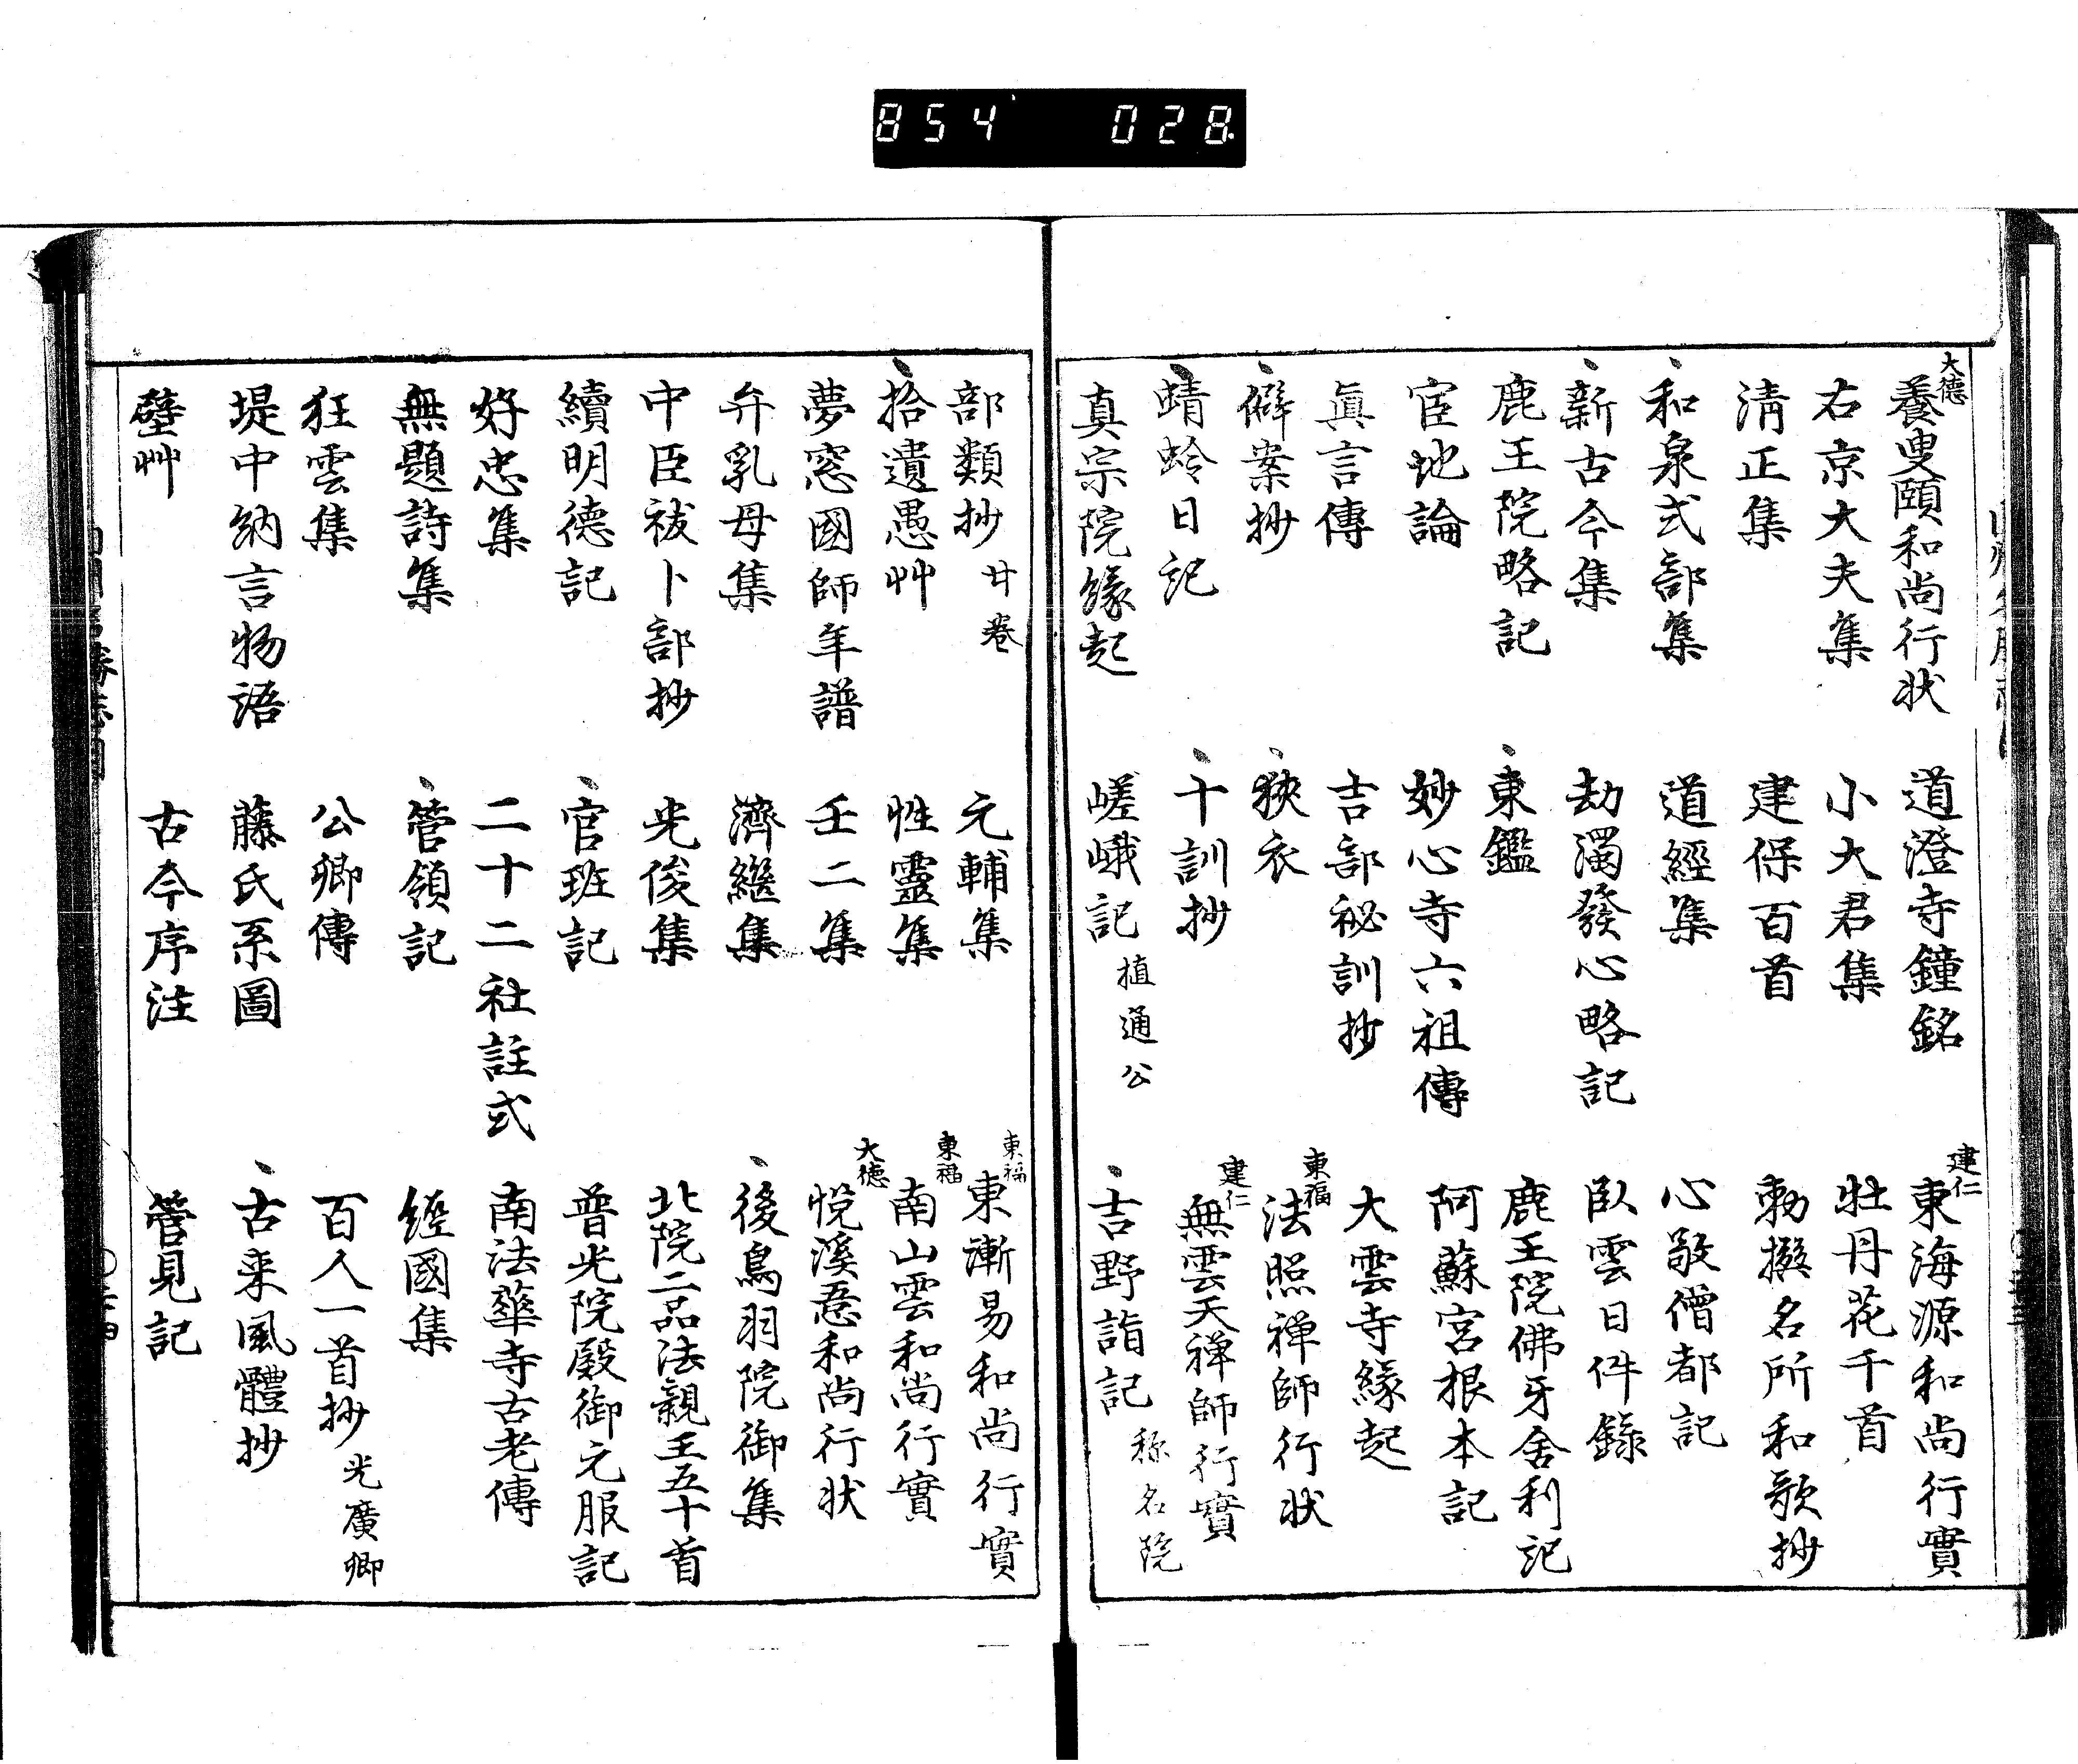 854 028
大德養叟頤和尚行状 道澄寺鐘銘 建仁東海源和尚行實
右京大夫集 小大君集 牡丹花千首
清正集 建保百首 勅撰名所和歌抄
和泉式部集 道經集 心敬僧都記
新古今集 劫濁發心略記 臥雲日件錄
鹿王院略記 東鑑 鹿王院佛牙舍利記
宦地論 妙心寺六祖傳 阿蘇宮根本記
眞言傳 吉部祕訓抄 大雲寺緣起
僻案抄 狹衣 東福法照禅師行状
蜻蛉日記 十訓抄 建仁無雲天禅師行實
真宗院緣起 嵯峨記 植通公 吉野詣記 称名院
部類抄 廿卷 元輔集 東福東漸易和尚行實
拾遺愚艸 性靈集 東福南山雲和尚行實
夢窓國師年譜 壬二集 大德悅溪悆和尚行状
弁乳母集 濟繼集 後鳥羽院御集
中臣祓卜部抄 光俊集 北院二品法親王五十首
續明德記 官班記 普光院殿御元服記
好忠集 二十二社註式 南法華寺古老傳
無題詩集 管領記 經國集
狂雲集 公卿傳 百人一首抄 光廣卿
堤中納言物語 藤氏系圖 古来風體抄
壁艸 古今序注 管見記